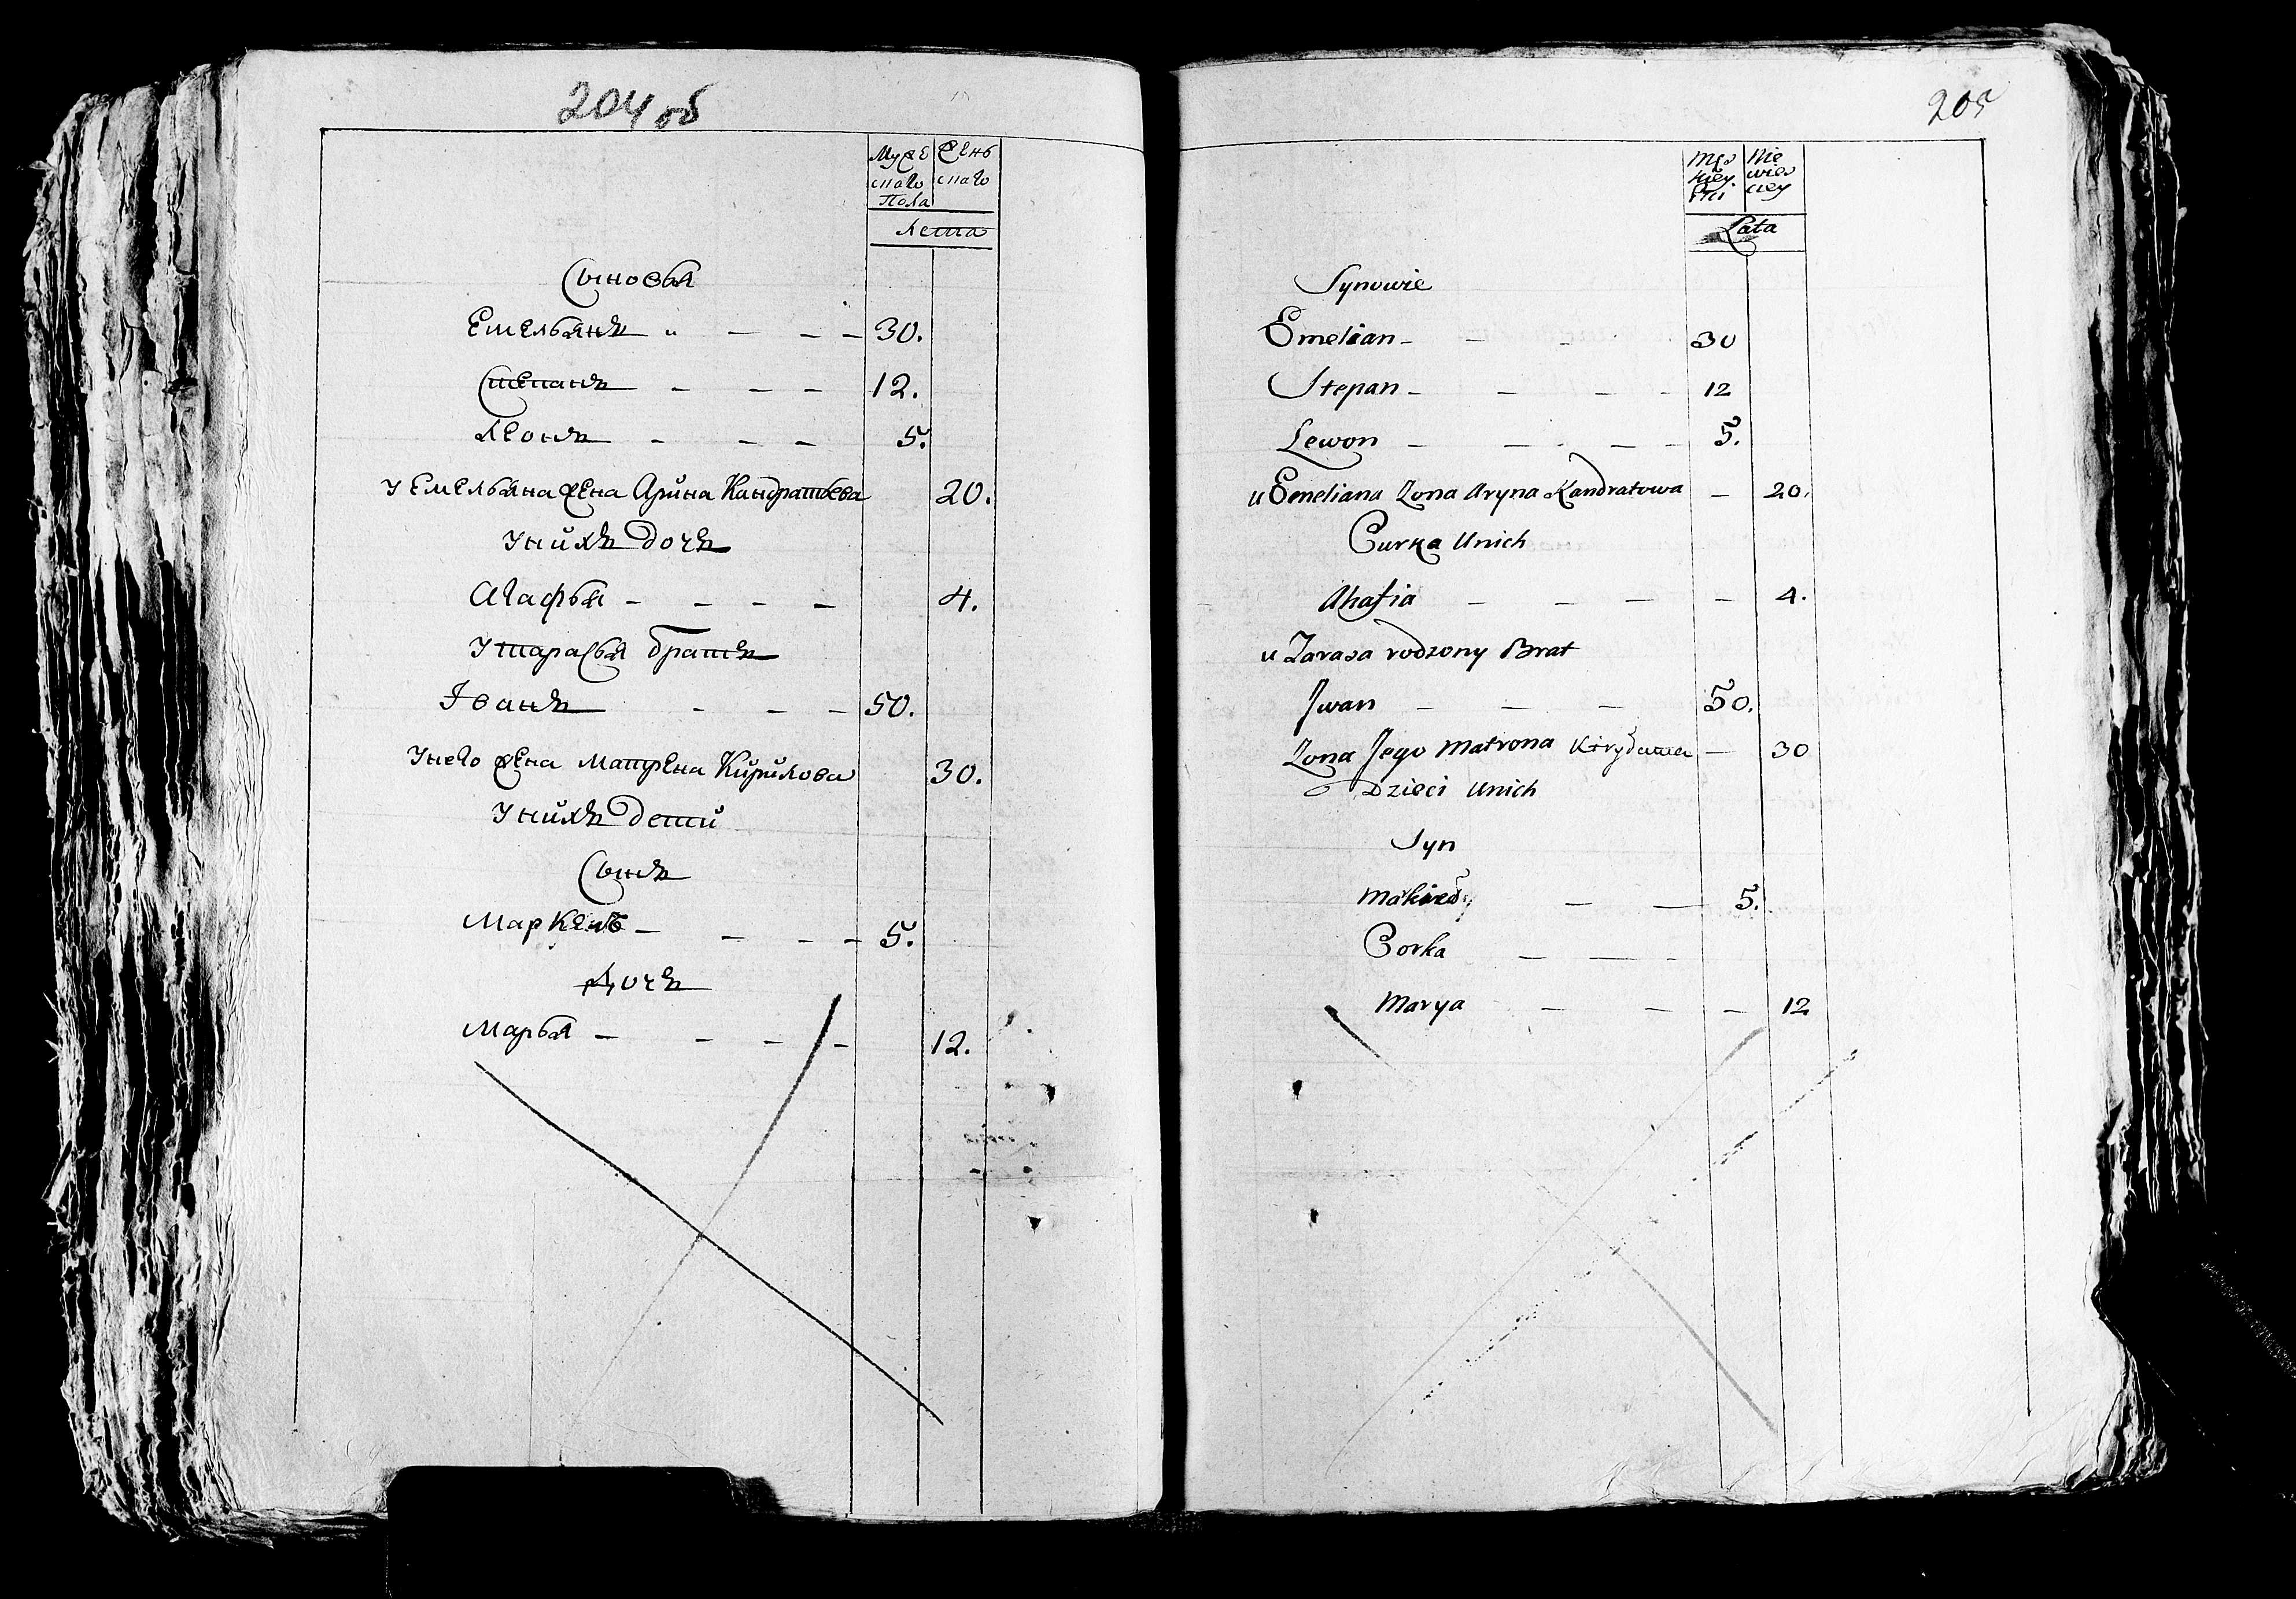 204 об
Муже Жен
скаго скаго
Пола
Лета
Сыновья
Емельянъ 30.
Степанъ 12.
Леонъ 5.
У Емельяна жена Арина Кандратьева 20.
У нихъ дочъ
Агафья 4.
У Тарасья братъ
Іванъ 50.
У него жена Матрена Кирилова 30.
У нихъ дети
Сынъ
Маркелъ 5.
Дочъ
Марья 12.
205
Męs Nie
kiey wies
Płci ciey
Lata
Synowie
Emelian 30
Stepan 12
Lewon 5.
u Emeliana Zona Aryna Kandratowa 20.
Curka Unich
Ahafia 4.
u Tarasa rodzony Brat
Jwan 50.
Zona Jego Matrona 30
Dzieci Unich
Syn
5.
Corka
Marya 12